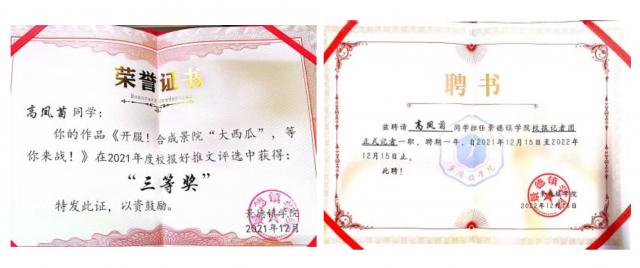 荣誉证书
高凤茵同学：
你的作品《开服！合成景院“大西瓜”，等
你来战！》在2021年度校报好推文评选中获得：
“三等奖”
特发此证，以资鼓励。
景德镇学院
2021年12月
聘书
兹聘请 高凤茵 同学担任景德镇学院校报记者团
正式记者一职，聘期一年，自2021年12月15日至2022年
12月15日止。
此聘！
景德镇学院